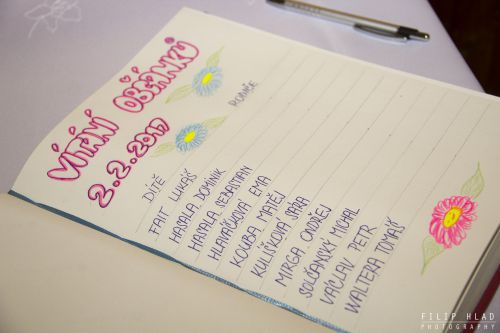 VÍTÁNÍ OBČÁNKŮ
2.2.2017
DÍTĚ RODIČE
FAIT LUKÁŠ
HASALA DOMINIK
HASALA SEBASTIAN
HLAVÁČKOVÁ EMA
KOUBA MATĚJ
KULÍŠKOVÁ SÁRA
MIRGA ONDŘEJ
SOLČANSKÝ MICHAL
VÁCLAV PETR
WALTERA TOMÁŠ
FILIP HLAD
PHOTOGRAPHY